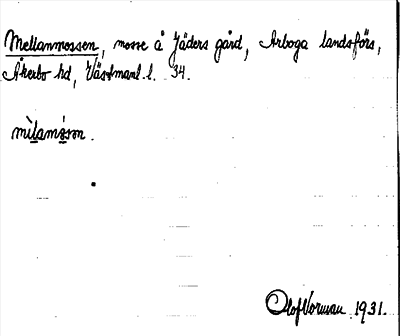 Mellanmossen, mosse å Jäders gård, Arboga landsförs,
Åkerbo hd, Västmanl. l. 34.
mìlamǿsən.
Olof Norman 1931.